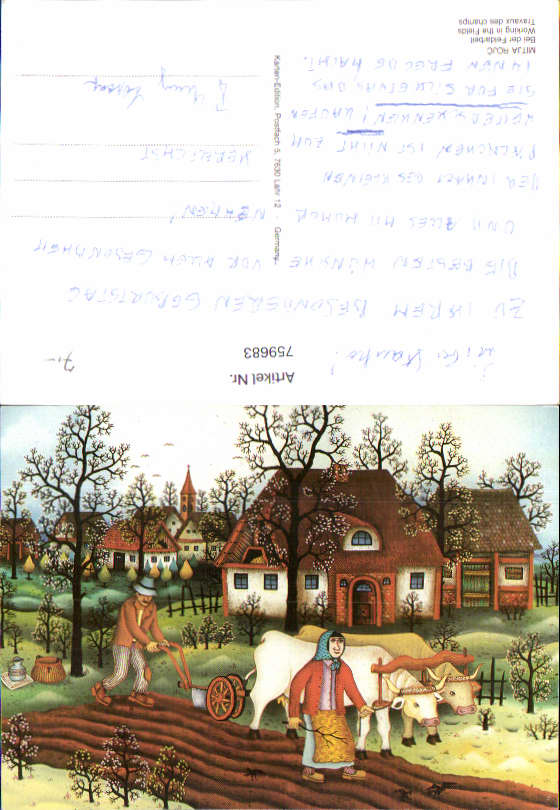 Artikel Nr.
759683
7.-
ZU IHREM BESONDEREN GEBURTSTAG
DIE BESTEN WÜNSCHE VOR ALLEM GESUNDHEIT
UND ALLES MIT HUMOR NEHMEN!
DER INHALT DES KLEINEN
PÄCKCHEN IST NICHT ZUM
SIE FÜR SICH ETWAS DAS
IHNEN FREUDE MACHT.
HERZLICHST
Karten-Edition, Postfach 5, 7630 Lahr 12 · Germany
MITJA ROJC
Bei der Feldarbeit
Working in the Fields
Travaux des champs